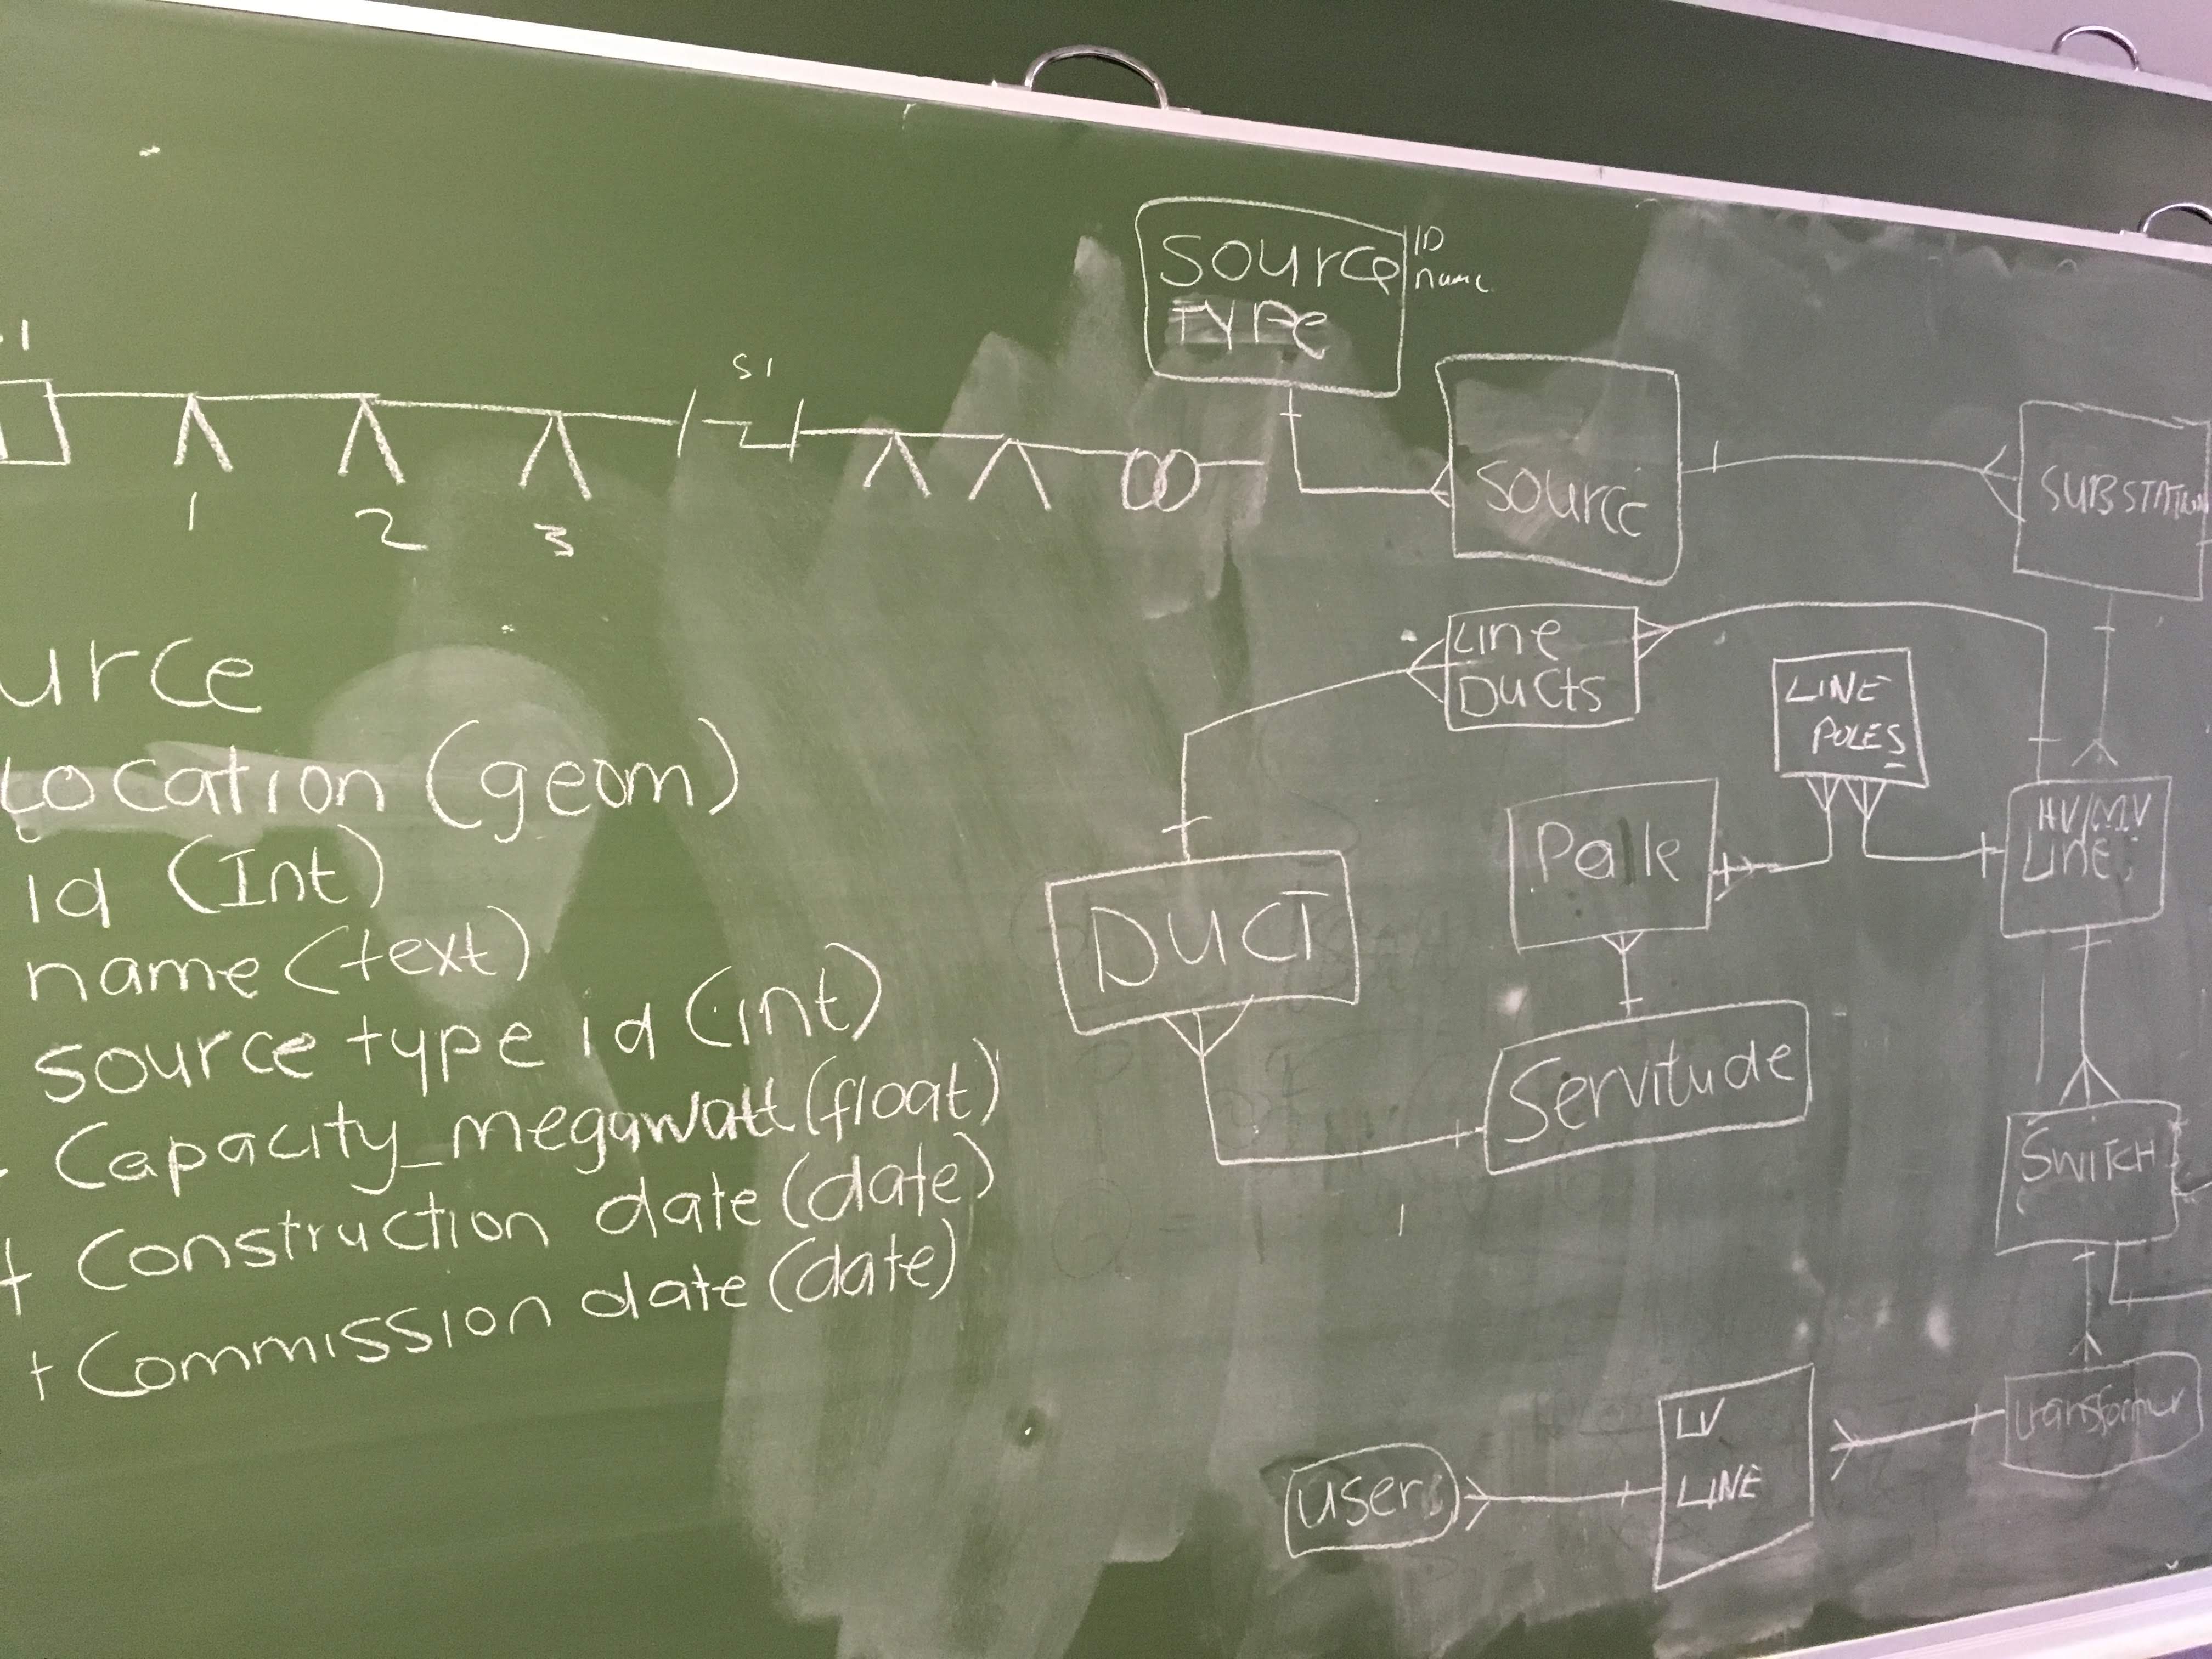 .1
S1
1
2
3
urce
Location (geom)
id (Int)
name (text)
source type id (int)
Capacity_megawatt (float)
+ Construction date (date)
+ Commission date (date)
Source
TYPE
ID
name
Source
SUBSTATION
Line
Ducts
LINE
POLES
HV/MV
Line
DUCT
Servitude
SWITCH
transformer
LV
LINE
users